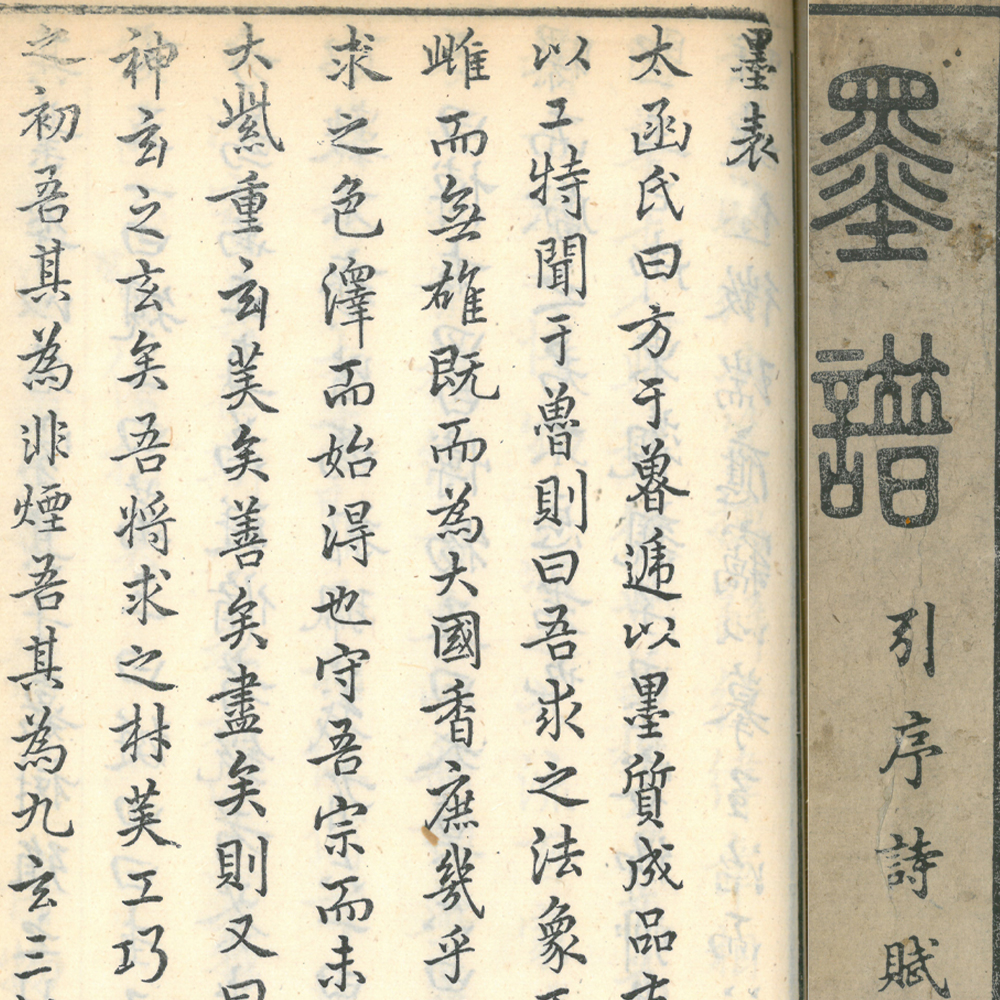 墨譜
引序詩賦
墨表
太函氏曰方于魯遞以墨質成品
以工特聞于魯則曰吾求之法象
雌而無雄既而為大國香庶幾乎
求之色澤而始得也守吾宗而未
大紫重玄美矣善矣盡矣則又曰
神玄之玄矣吾將求之材美工巧
之初吾其為非煙吾其為九玄三